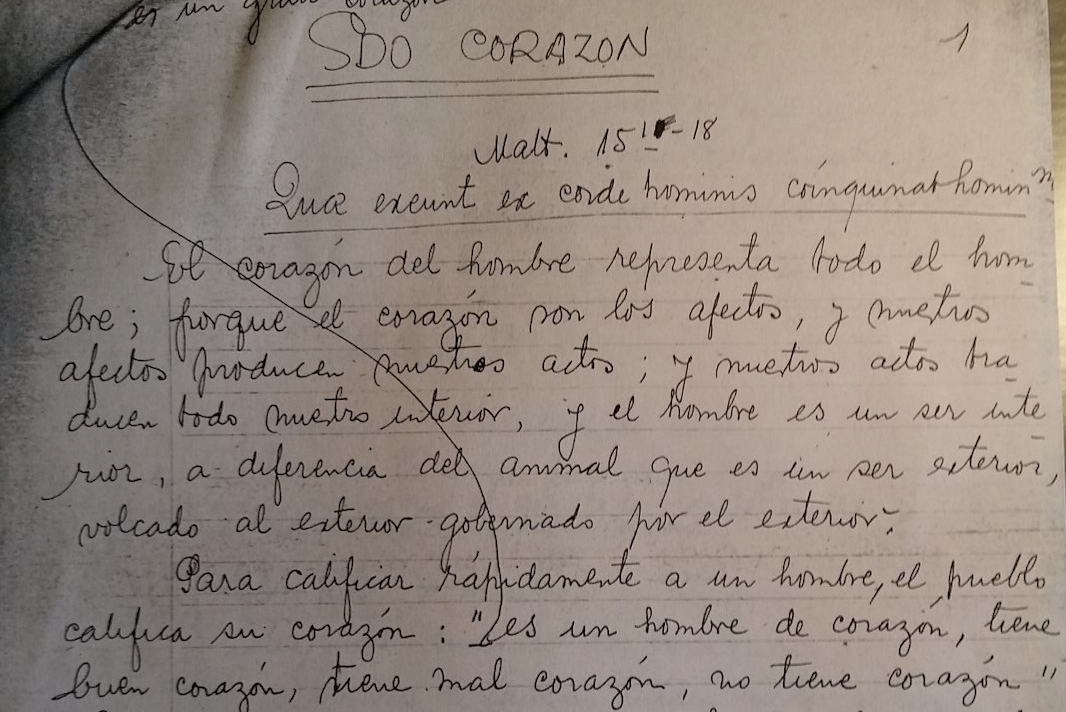 es un gran corazón
SDO CORAZON 1
Matt. 15 - 18
Quæ exeunt ex corde hominis coinquinat homin
El corazón del hombre representa todo el hom
bre; porque el corazón son los afectos, y nuestros
afectos producen nuestros actos; y nuestros actos tra
ducen todo nuestro interior, y el hombre es un ser inte
rior, a diferencia del animal que es un ser exterior,
volcado al exterior - gobernado por el exterior.
Para calificar rápidamente a un hombre, el pueblo
califica su corazón: "es un hombre de corazón, tiene
buen corazón, tiene mal corazón, no tiene corazón"